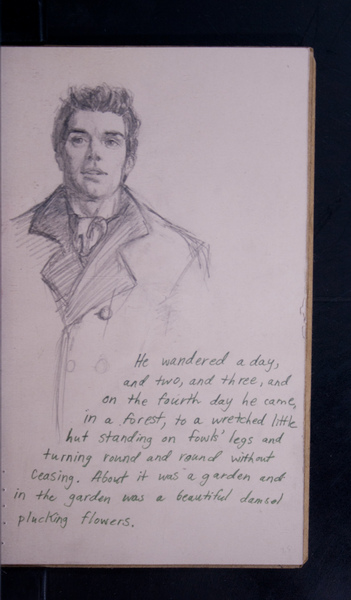 He wandered a day,
and two, and three, and
on the fourth day he came,
in a forest, to a wretched little
hut standing on fowls' legs and
turning round and round without
ceasing. About it was a garden and
in the garden was a beautiful damsel
plucking flowers.